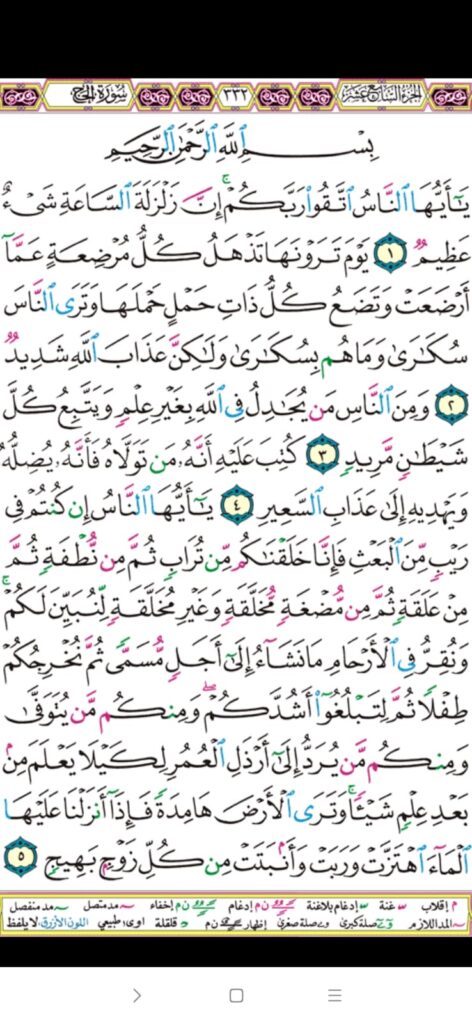 الجزء السابع عشر ٣٣٢ سورة الحج
بِسْمِ ٱللَّهِ ٱلرَّحْمَٰنِ ٱلرَّحِيمِ
يَٰٓأَيُّهَا ٱلنَّاسُ ٱتَّقُوا۟ رَبَّكُمْ ۚ إِنَّ زَلْزَلَةَ ٱلسَّاعَةِ شَىْءٌ
عَظِيمٌ ١ يَوْمَ تَرَوْنَهَا تَذْهَلُ كُلُّ مُرْضِعَةٍ عَمَّآ
أَرْضَعَتْ وَتَضَعُ كُلُّ ذَاتِ حَمْلٍ حَمْلَهَا وَتَرَى ٱلنَّاسَ
سُكَٰرَىٰ وَمَا هُم بِسُكَٰرَىٰ وَلَٰكِنَّ عَذَابَ ٱللَّهِ شَدِيدٌ
٢ وَمِنَ ٱلنَّاسِ مَن يُجَٰدِلُ فِى ٱللَّهِ بِغَيْرِ عِلْمٍ وَيَتَّبِعُ كُلَّ
شَيْطَٰنٍ مَّرِيدٍ ٣ كُتِبَ عَلَيْهِ أَنَّهُۥ مَن تَوَلَّاهُ فَأَنَّهُۥ يُضِلُّهُۥ
وَيَهْدِيهِ إِلَىٰ عَذَابِ ٱلسَّعِيرِ ٤ يَٰٓأَيُّهَا ٱلنَّاسُ إِن كُنتُمْ فِى
رَيْبٍ مِّنَ ٱلْبَعْثِ فَإِنَّا خَلَقْنَٰكُم مِّن تُرَابٍ ثُمَّ مِن نُّطْفَةٍ ثُمَّ
مِنْ عَلَقَةٍ ثُمَّ مِن مُّضْغَةٍ مُّخَلَّقَةٍ وَغَيْرِ مُخَلَّقَةٍ لِّنُبَيِّنَ لَكُمْ ۚ
وَنُقِرُّ فِى ٱلْأَرْحَامِ مَا نَشَآءُ إِلَىٰٓ أَجَلٍ مُّسَمًّى ثُمَّ نُخْرِجُكُمْ
طِفْلًا ثُمَّ لِتَبْلُغُوٓا۟ أَشُدَّكُمْ ۖ وَمِنكُم مَّن يُتَوَفَّىٰ
وَمِنكُم مَّن يُرَدُّ إِلَىٰٓ أَرْذَلِ ٱلْعُمُرِ لِكَيْلَا يَعْلَمَ مِنۢ
بَعْدِ عِلْمٍ شَيْـًٔا ۚ وَتَرَى ٱلْأَرْضَ هَامِدَةً فَإِذَآ أَنزَلْنَا عَلَيْهَا
ٱلْمَآءَ ٱهْتَزَّتْ وَرَبَتْ وَأَنۢبَتَتْ مِن كُلِّ زَوْجٍۭ بَهِيجٍ ٥
م إقلاب س غنة إدغام بلا غنة ن م إدغام ن م إخفاء مد متصل مد منفصل
المد اللازم صلة كبرى صلة صغرى إظهار ن م قلقلة اوى: طبيعي اللون الأزرق: لا يلفظ